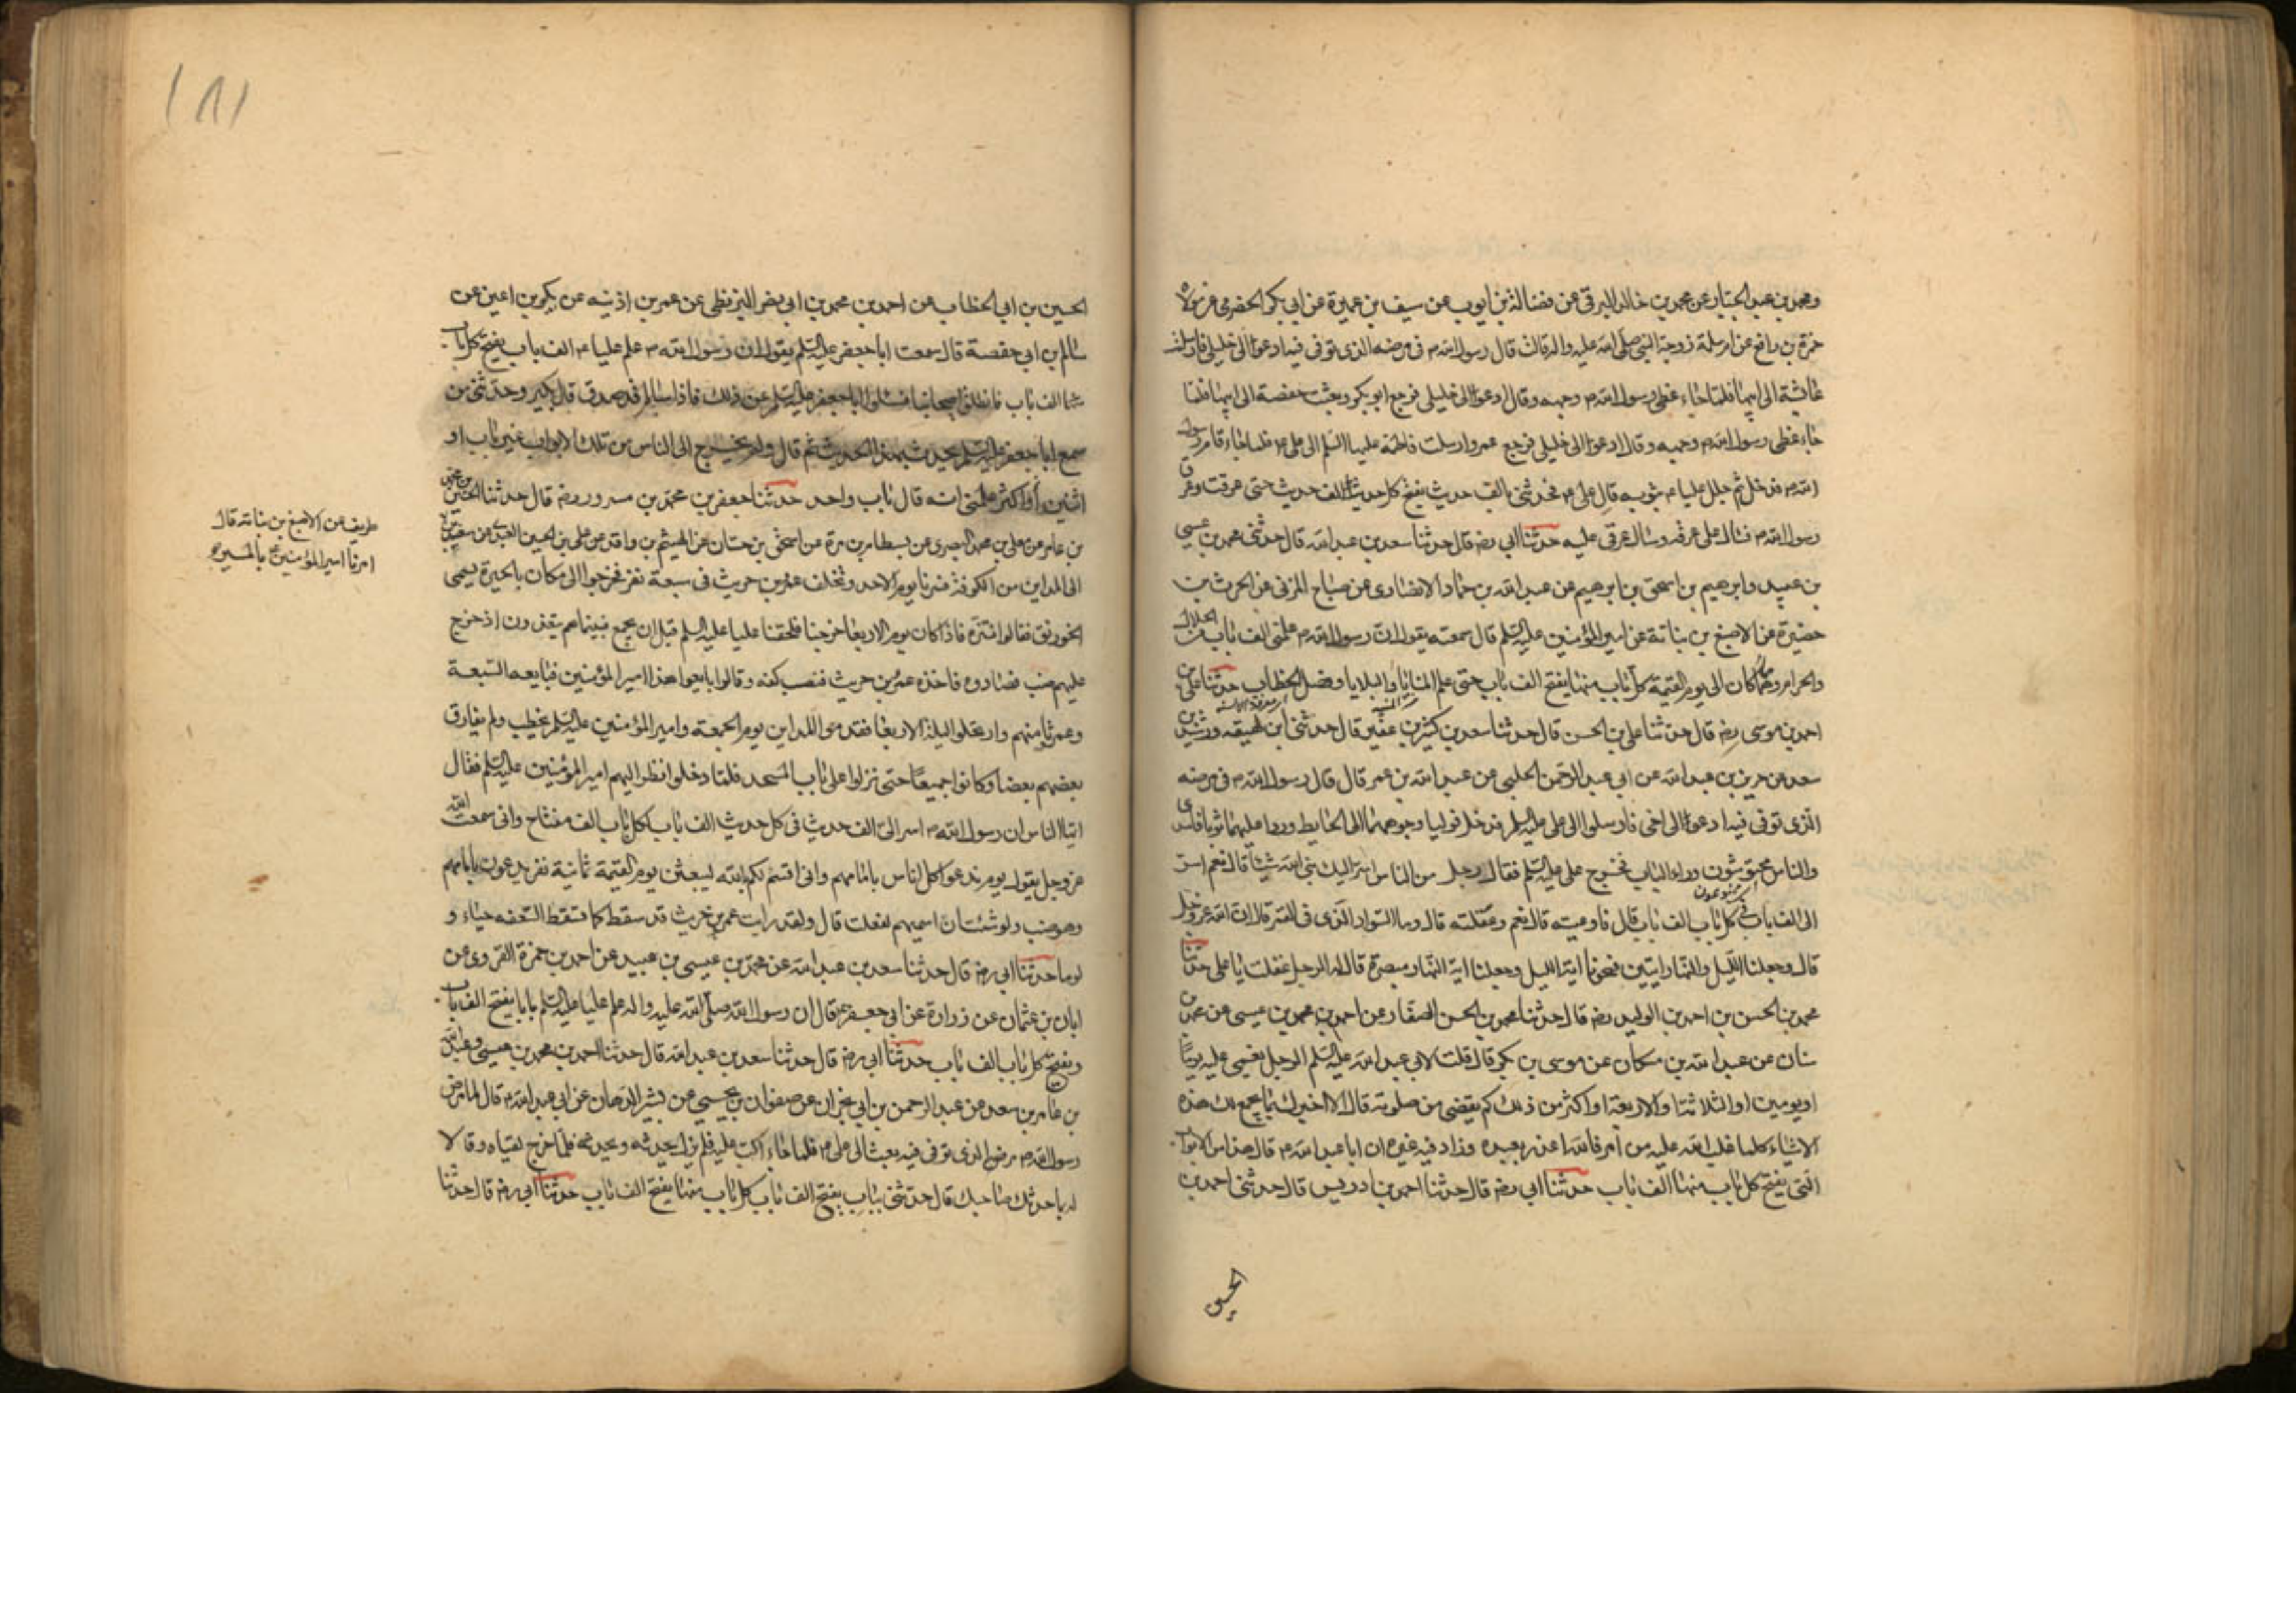 ومحمد بن عبد الجبار عن محمد بن خالد البرقي عن فضالة بن ايوب عن سيف بن عميرة عن ابي بكر الحضرمي عن مولاه
حمزة بن رافع عن ام سلمة زوجة النبي صلى الله عليه واله قالت قال رسول الله ص في مرضه الذي توفي فيه ادعوا الى خليلي فارسلت
عائشة الى ابيها فلما جاء غطى رسول الله ص وجهه وقال ادعوا الى خليلي فرجع ابو بكر وبعثت حفصة الى ابيها فلما
جاء غطى رسول الله ص وجهه وقال ادعوا الى خليلي فرجع عمر وارسلت فاطمة عليها السلم الى علي ع فلما جاء قام رسول
الله ص فدخل ثم جلل عليا ع بثوبه قال علي ع فحدثني بالف حديث يفتح كل حديث الف حديث حتى عرقت وعرق
رسول الله ص فسال على عرقه وسال عرقي عليه حدثنا ابي رضه قال حدثنا سعد بن عبد الله قال حدثني محمد بن عيسى
بن عبيد وابرهيم بن اسحق بن ابرهيم عن عبد الله بن حماد الانصاري عن صباح المزني عن الحرث بن
حضيرة عن الاصبغ بن نباتة عن امير المؤمنين عليه السلم قال سمعته يقول ان رسول الله ص علمني الف باب من الحلال
والحرام ومما كان الى يوم القيمة كل باب منها يفتح الف باب حتى علم المنايا والبلايا وفصل الخطاب حدثنا علي بن
احمد بن موسى رضه قال حدثنا علي بن الحسن قال حدثنا سعد بن كثير بن عفير قال حدثني ابن لهيعه ورشدين بن
سعد عن حريز بن عبد الله عن ابي عبد الرحمن الحبلي عن عبد الله بن عمر قال قال رسول الله ص في مرضه
الذي توفي فيه ادعوا الى اخي فارسلوا الى علي عليه السلم فدخل فوليا وجوههما الى الحايط وردا عليهما ثوبا فاسر
والناس محتوشون وراء الباب فخرج علي عليه السلم فقال رجل من الناس اسر اليك نبي الله شيئا قال نعم اسر
الى الف باب في كل باب الف باب قال فاوعيته قال نعم وعقلته قال وما السواد الذي في القمر قال ان الله عز وجل
قال وجعلنا الليل والنهار ايتين فمحونا اية الليل وجعلنا اية النهار مبصرة قال له الرجل عقلت يا علي حدثنا
محمد بن الحسن بن احمد بن الوليد رضه قال حدثنا محمد بن الحسن الصفار عن احمد بن محمد بن عيسى عن محمد بن
سنان عن عبد الله بن مسكان عن موسى بن بكر قال قلت لابي عبد الله عليه السلم الرجل يغمى عليه يوما
او يومين او الثلاثة او الاربعة او اكثر من ذلك كم يقضي من صلوته قال الا اخبرك بما يجمع لك هذه
الاشياء كلما غلب الله عليه من امر فالله اعذر بعبده وزاد فيه غيره ان ابا عبد الله ع قال هذا من الابواب
التي يفتح كل باب منها الف باب حدثنا ابي رضه قال حدثنا احمد بن ادريس قال حدثني احمد بن
الحسين
١٨١
الحسين بن ابي الخطاب عن احمد بن محمد بن ابي نصر البزنطي عن عمر بن اذينه عن بكير بن اعين عن
سالم بن ابي حفصة قال سمعت ابا جعفر عليه السلم يقول ان رسول الله ص علم عليا ع الف باب يفتح كل باب
منها الف باب فانطلق اصحابنا فسئلوا ابا جعفر عليه السلم عن ذلك فاذا سالم قد صدق قال بكير وحدثني من
سمع ابا جعفر عليه السلم يحدث بهذا الحديث ثم قال ولم يخرج الى الناس من تلك الابواب غير باب او
اثنين او اكثر علمي انه قال باب واحد حدثنا جعفر بن محمد بن مسرور رضه قال حدثنا الحسين بن محمد
بن عامر عن معلى بن محمد البصري عن بسطام بن مرة عن اسحق بن حسان عن الهيثم بن واقد عن علي بن الحسين العبدي عن سعد بن
طريف عن الاصبغ بن نباته قال
امرنا امير المؤمنين ع بالمسير
الى المداين من الكوفة فسرنا يوم الاحد وتخلف عمرو بن حريث في سبعة نفر فخرجوا الى مكان بالحيرة يسمى
الخورنق فقالوا نتنزه فاذا كان يوم الاربعا خرجنا فلحقنا عليا عليه السلم قبل ان يجمع فبينما هم يتغدون اذ خرج
عليهم ضب فصادوه فاخذه عمرو بن حريث فنصب كفه وقالوا بايعوا هذا امير المؤمنين فبايعه السبعة
وعمرو ثامنهم وارتحلوا ليلة الاربعا فقدموا المداين يوم الجمعة وامير المؤمنين عليه السلم يخطب ولم يفارق
بعضهم بعضا وكانوا جميعا حتى نزلوا على باب المسجد فلما دخلوا نظر اليهم امير المؤمنين عليه السلم فقال
ايها الناس ان رسول الله ص اسر الي الف حديث في كل حديث الف باب لكل باب الف مفتاح واني سمعت الله
عز وجل يقول يوم ندعو كل اناس بامامهم واني اقسم لكم بالله ليبعثن يوم القيمة ثمانية نفر يدعون بامامهم
وهو ضب ولو شئت ان اسميهم لفعلت قال ولقد رايت عمرو بن حريث قد سقط كما تسقط السعفه حياء و
لوما حدثنا ابي رضه قال حدثنا سعد بن عبد الله عن محمد بن عيسى بن عبيد عن احمد بن حمزة القروي عن
ابان بن عثمان عن زرارة عن ابي جعفر ع قال ان رسول الله صلى الله عليه واله علم عليا عليه السلم بابا يفتح الف باب
ويفتح كل باب الف باب حدثنا ابي رضه قال حدثنا سعد بن عبد الله قال حدثنا احمد بن محمد بن عيسى وعبد الله
بن عامر بن سعد عن عبد الرحمن بن ابي نجران عن صفوان بن يحيى عن بشير الدهان عن ابي عبد الله ع قال لما مرض
رسول الله ص مرض الذي توفي فيه بعث الى علي ع فلما جاء اكب عليه فلم يزل يحدثه ويحدثه فلما خرج لقياه وقالا
له بما حدثك صاحبك قال حدثني بباب يفتح الف باب كل باب منها يفتح الف باب حدثنا ابي رضه قال حدثنا